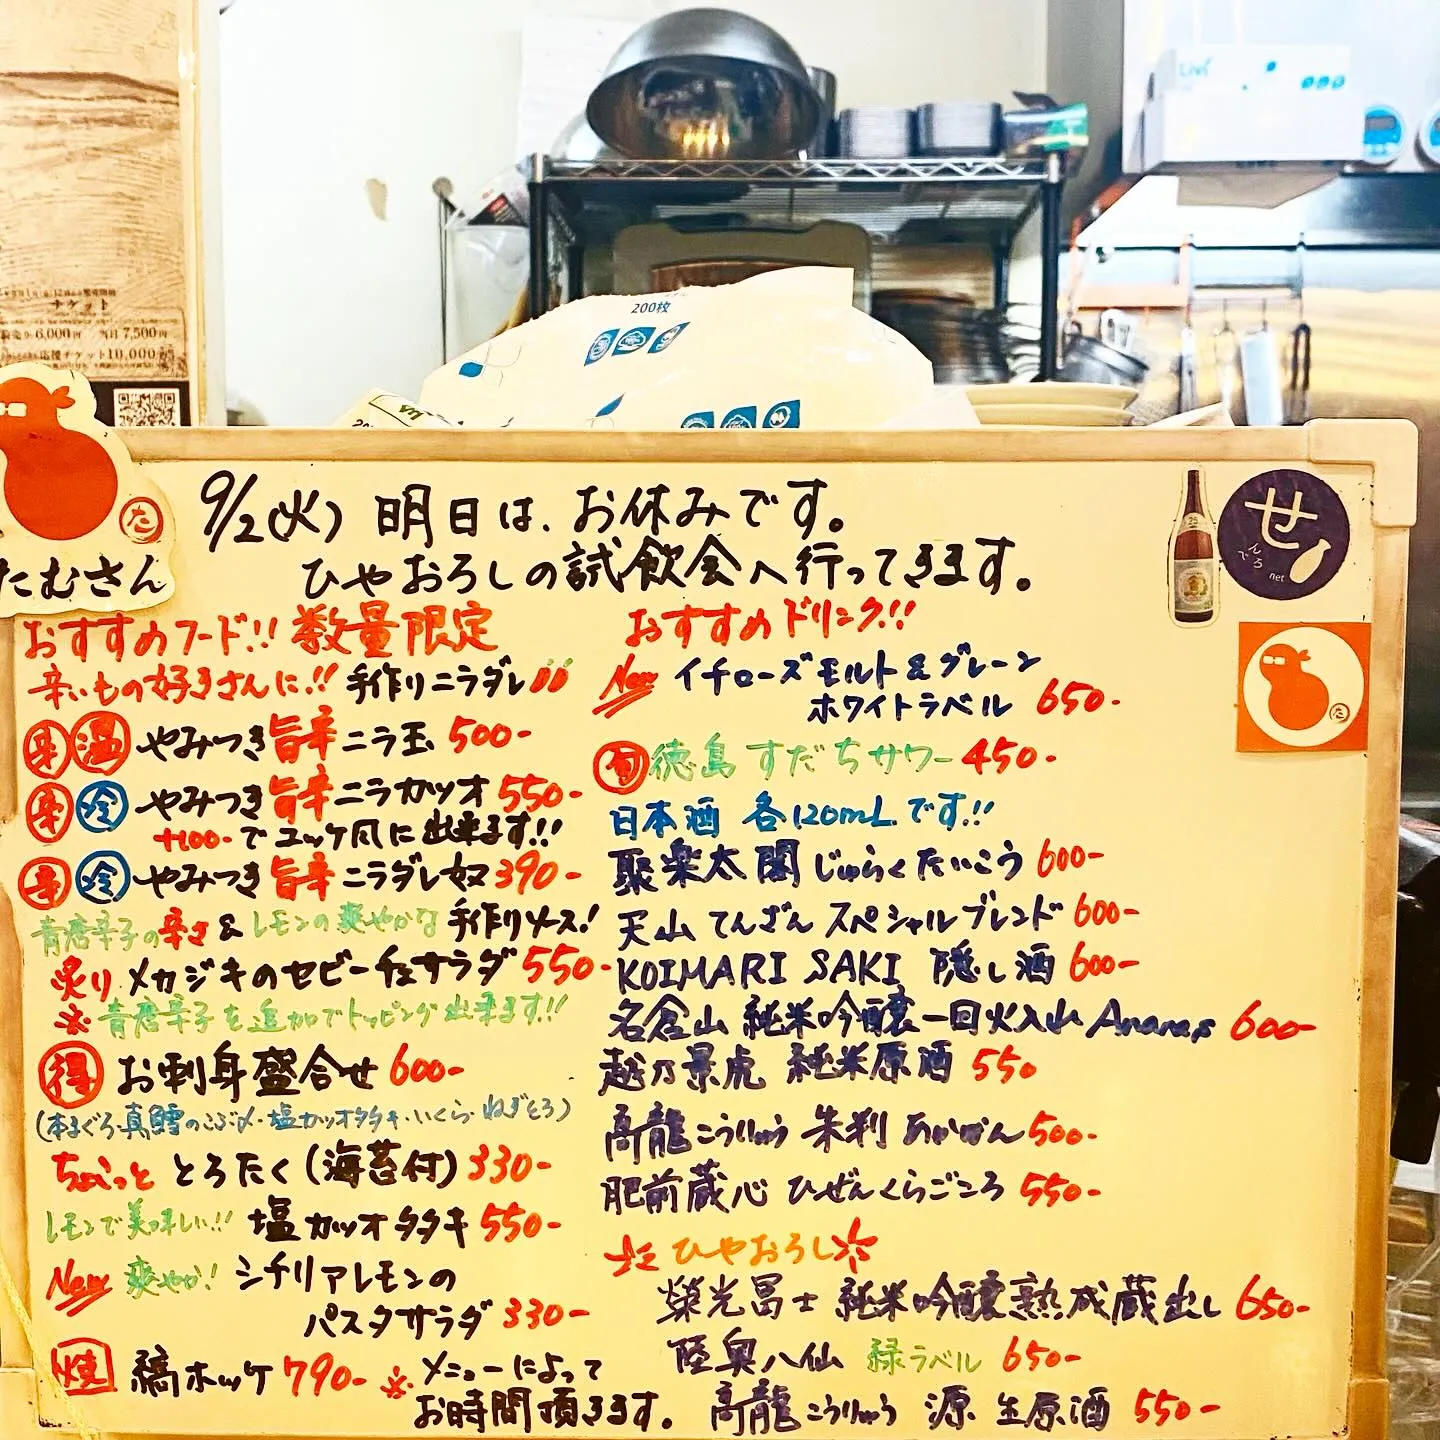 Livi
200枚
チケット
6,000円 当日7,500円
応援チケット10,000円
たむさん
せ
んでろ
net
9/2(火) 明日は、お休みです。
ひやおろしの試飲会へ行ってきます。
おすすめフード!! 数量限定
辛いもの好きさんに!! 手作りニラダレ
辛 温 やみつき旨辛ニラ玉 500-
辛 冷 やみつき旨辛ニラカツオ 550-
+100-でユッケ風に出来ます!!
辛 冷 やみつき旨辛ニラダレ奴 390-
青唐辛子の辛さ&レモンの爽やかな手作りソース!
炙りメカジキのセビーチェサラダ 550-
※青唐辛子を追加でトッピング出来ます!!
得 お刺身盛合せ 600-
(本まぐろ・真鱈のこぶ〆・塩カツオタタキ・いくら・ねぎとろ)
ちょこっと とろたく(海苔付) 330-
レモンで美味しい!! 塩カツオタタキ 550-
New 爽やか! シチリアレモンの
パスタサラダ 330-
焼 縞ホッケ 790- ※メニューによって
お時間頂きます。
おすすめドリンク!!
New イチローズモルト&グレーン
ホワイトラベル 650-
旬 徳島すだちサワー 450-
日本酒 各120mLです!!
聚楽太閤 じゅらくたいこう 600-
天山 てんざん スペシャルブレンド 600-
KOIMARI SAKI 隠し酒 600-
名倉山 純米吟醸一回火入れ Ananas 600-
越乃景虎 純米原酒 550
高龍 こうりゅう 朱判 あかばん 500-
肥前蔵心 ひぜんくらごころ 550-
ひやおろし
榮光冨士 純米吟醸熟成蔵出し 650-
陸奥八仙 緑ラベル 650-
高龍 こうりゅう 源 生原酒 550-